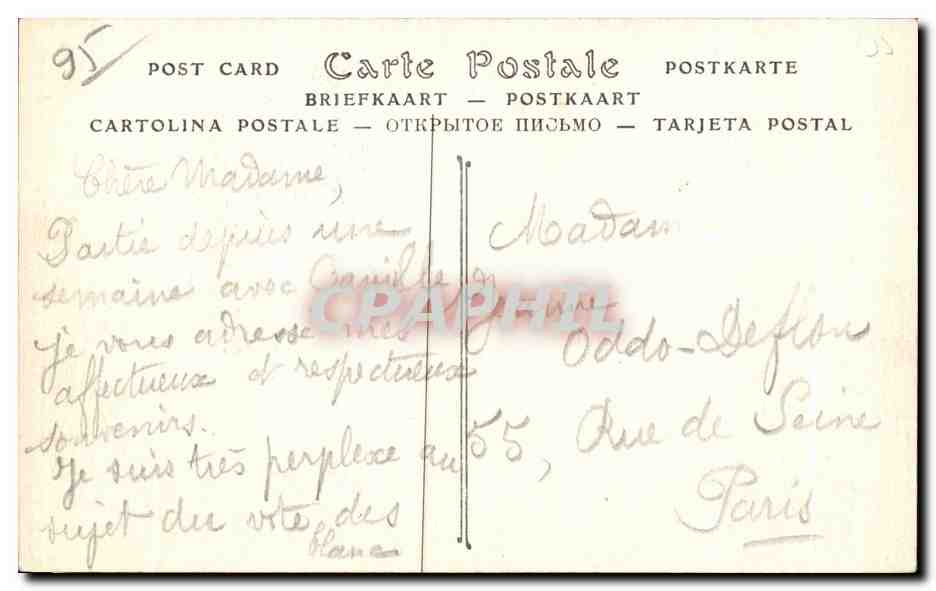 95
POST CARD Carte Postale POSTKARTE
BRIEFKAART — POSTKAART
CARTOLINA POSTALE — ОТКРЫТОЕ ПИСЬМО — TARJETA POSTAL
Chère Madame,
Partie depuis une
semaine avec Camille
je vous adresse mes
affectueux et respectueux
souvenirs.
Je suis très perplexe au
sujet du vote des
blanc
Madam
Jeanne
Oddo-Deflou
55, Rue de Seine
Paris
CPAPHIL